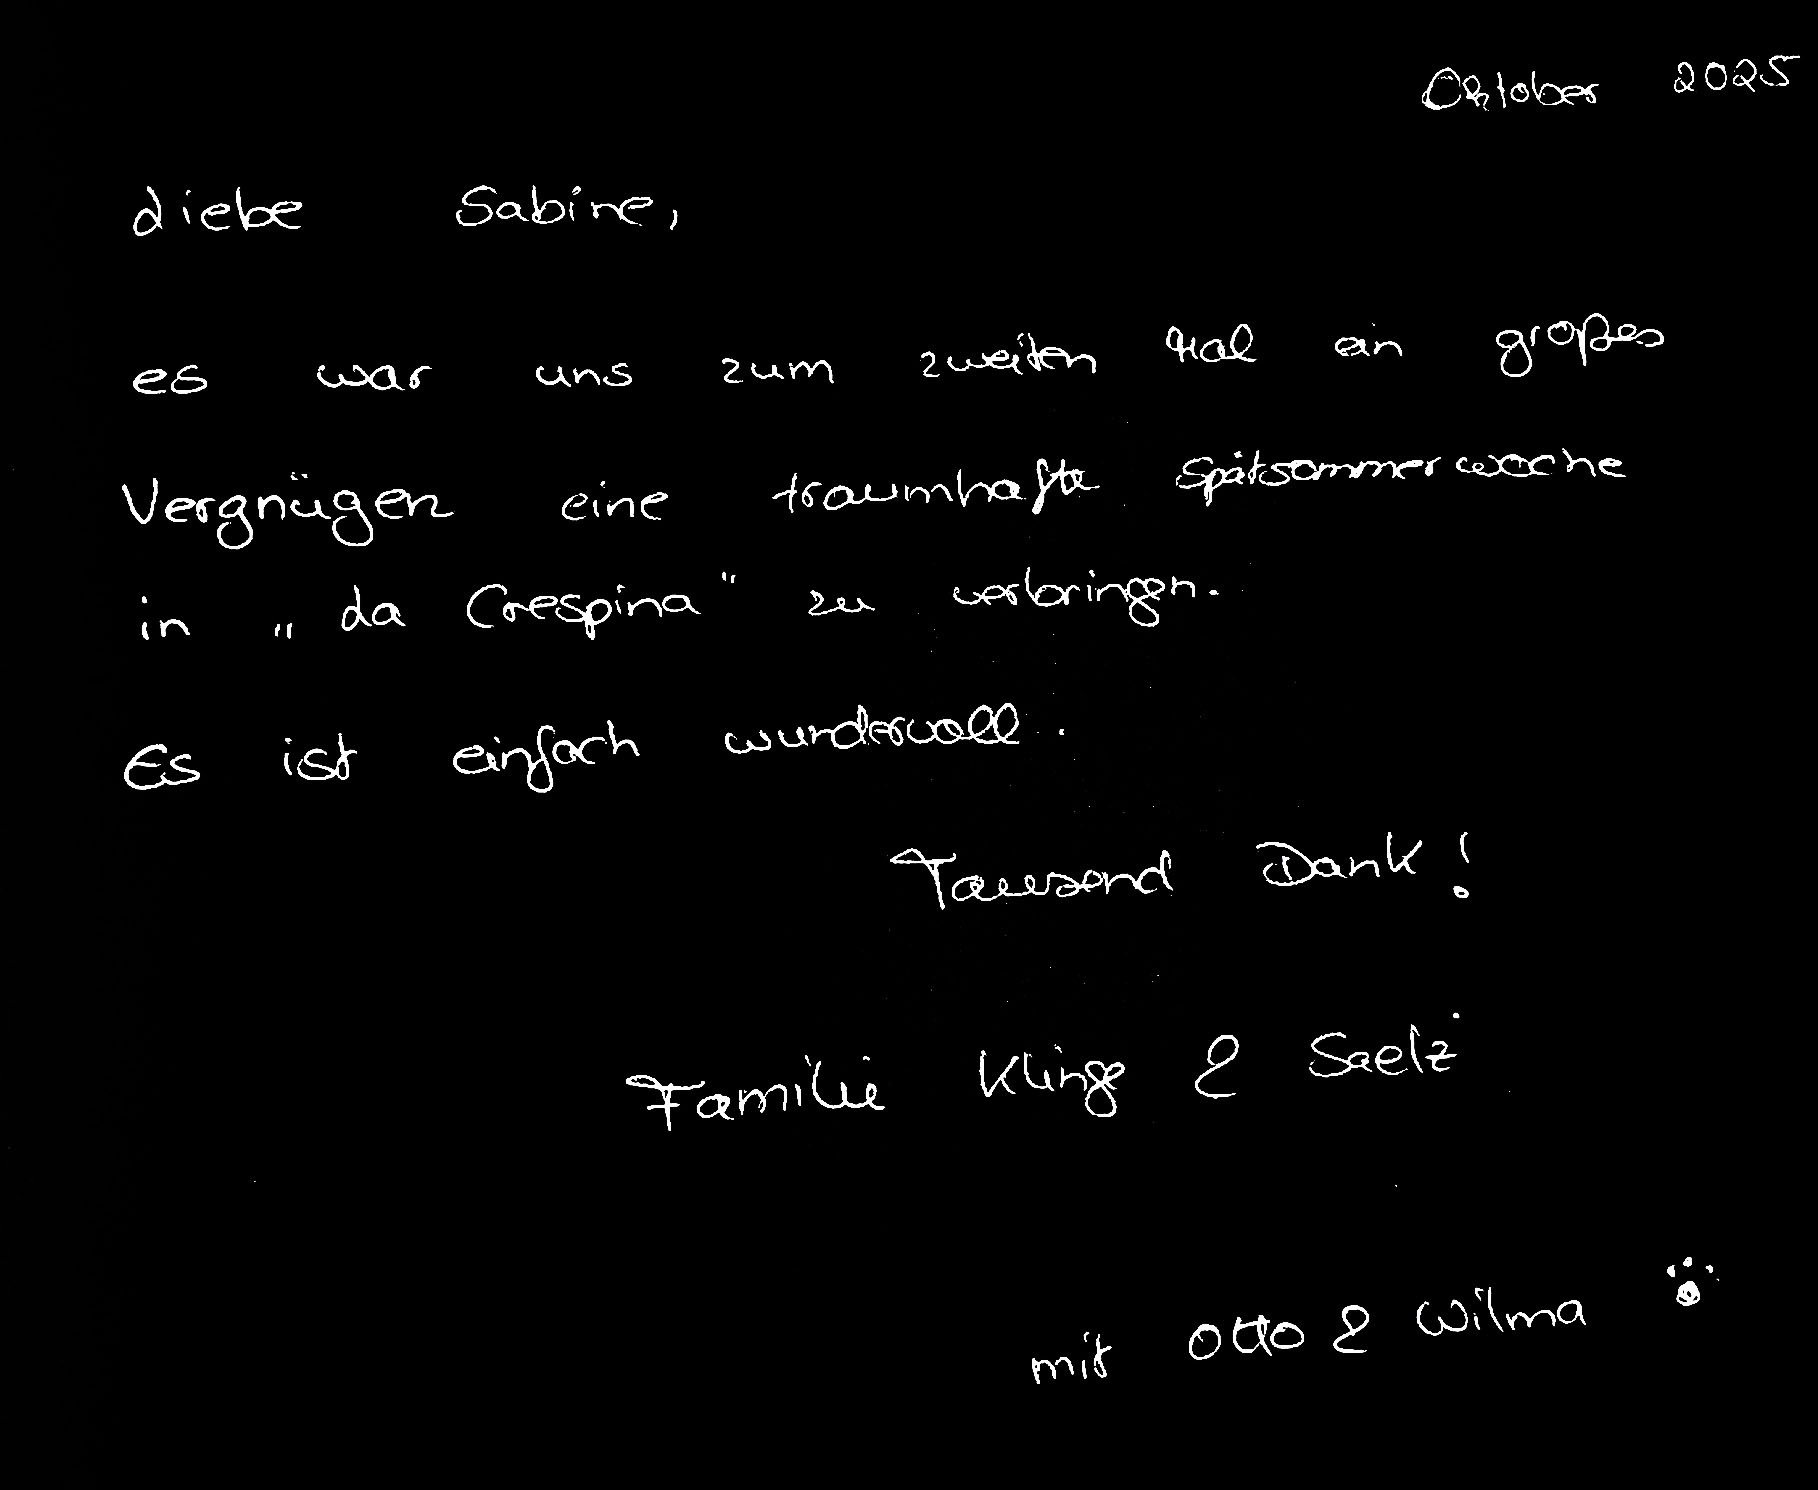 Oktober 2025
Liebe Sabine,
es war uns zum zweiten Mal ein großes
Vergnügen eine traumhafte Spätsommerwoche
in „da Crespina" zu verbringen.
Es ist einfach wundervoll.
Tausend Dank!
Familie Kling & Saelz
mit Otto & Wilma